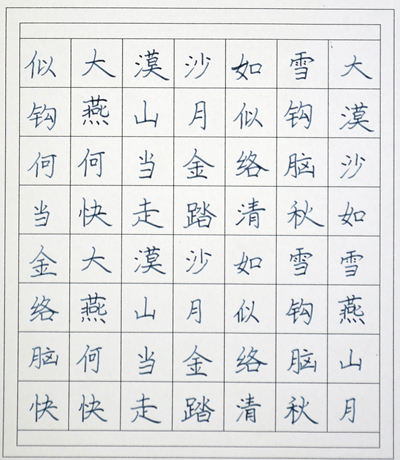 似大漠沙如雪大
钩燕山月似钩漠
何何当金络脑沙
当快走踏清秋如
金大漠沙如雪雪
络燕山月似钩燕
脑何当金络脑山
快快走踏清秋月